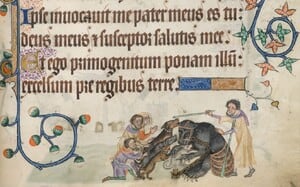 Ipse inuocauit me pater meus es tu
deus meus ⁊ susceptor salutis mee.
Et ego primogenitum ponam illū
excelsum pre regibus terre.